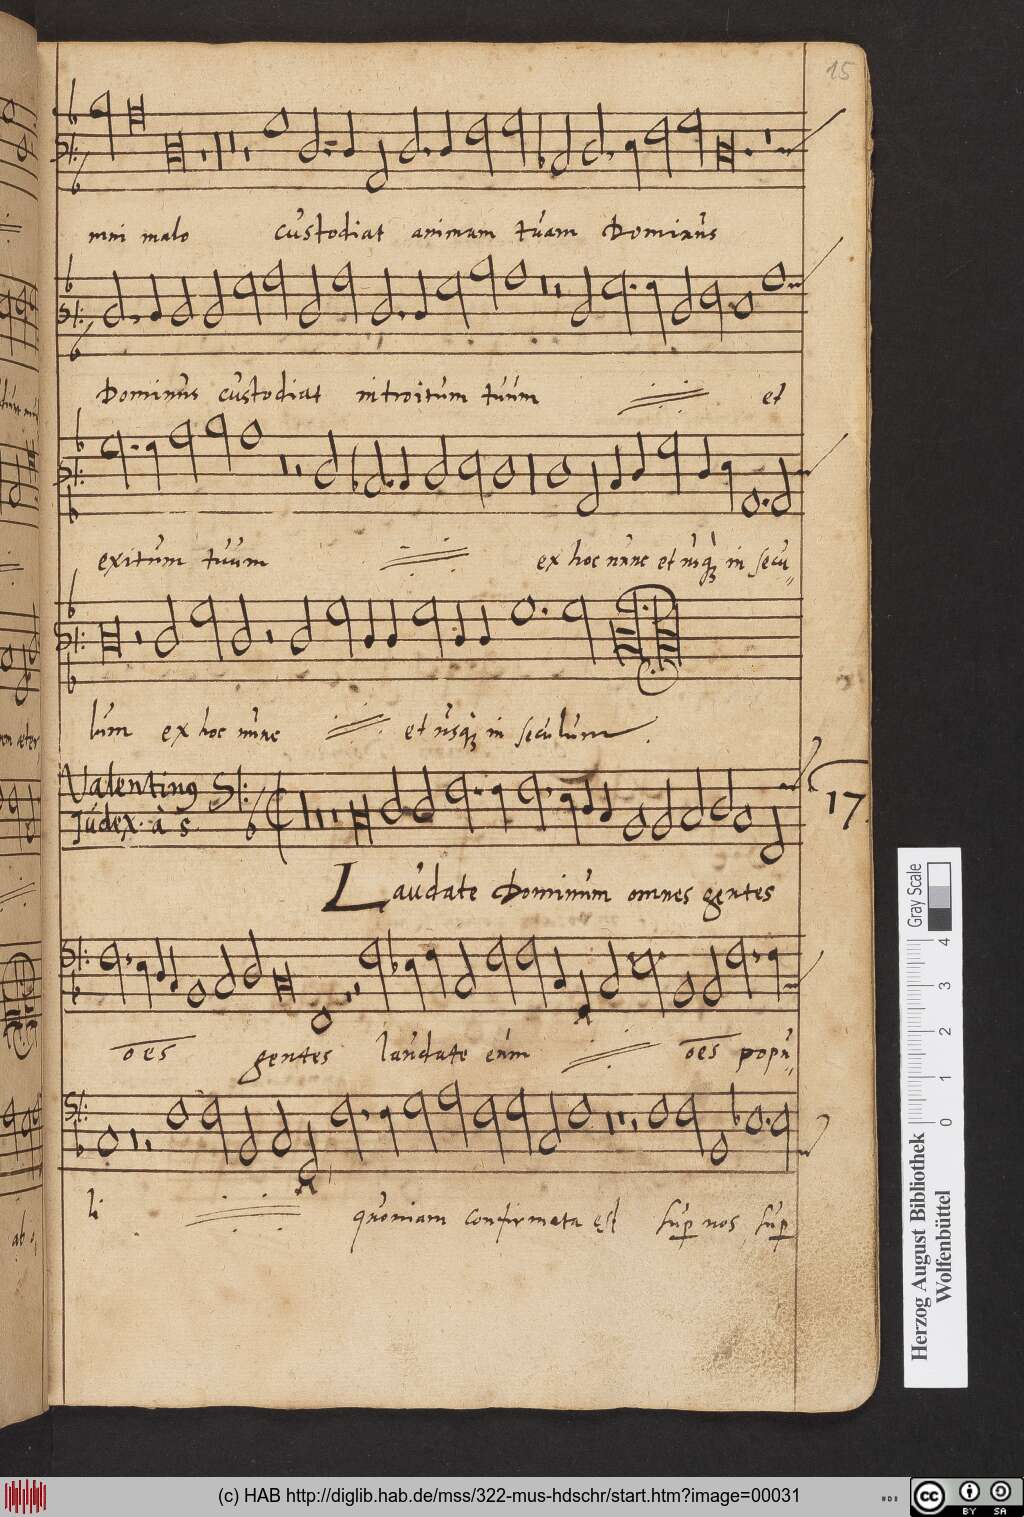 15
mni malo custodiat animam tuam Dominus
Dominus custodiat introitum tuum et
exitum tuum ex hoc nunc et usq3 in secu=
lum ex hoc nunc et usq3 in seculum.
Valentinus
Judex. à 5.
17
Laudate Dominum omnes gentes
oes gentes laudate eum oes popu=
li quoniam confirmata est sup nos sup
Gray Scale
0 1 2 3 4
Herzog August Bibliothek
Wolfenbüttel
(c) HAB http://diglib.hab.de/mss/322-mus-hdschr/start.htm?image=00031
cc BY SA